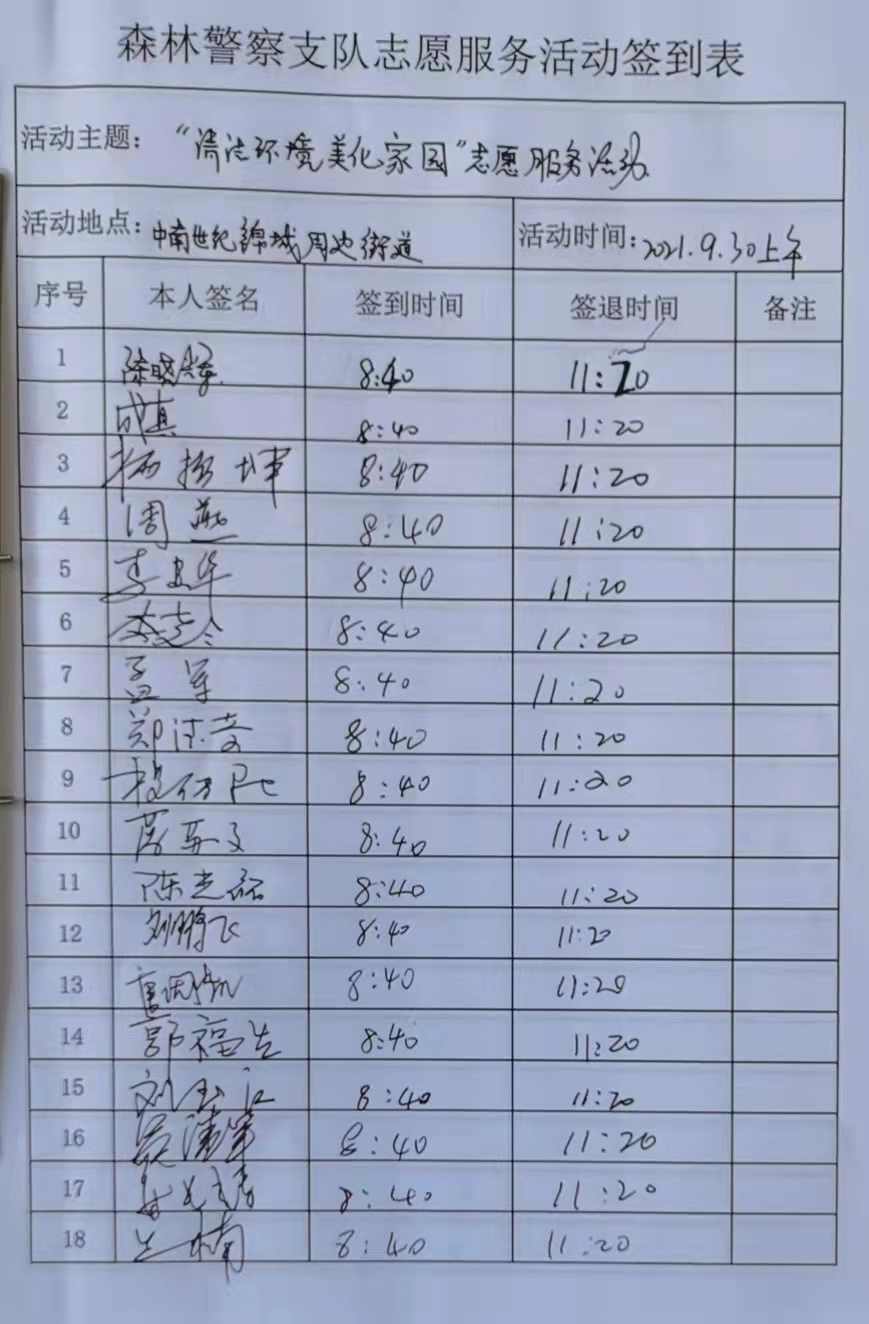 森林警察支队志愿服务活动签到表
活动主题：“清洁环境美化家园”志愿服务活动
活动地点：中南世纪锦城周边街道 活动时间：2021.9.30上午
序号 本人签名 签到时间 签退时间 备注
1 陈晓峰 8:40 11:20
2 成真 8:40 11:20
3 杨振坤 8:40 11:20
4 周燕 8:40 11:20
5 李建华 8:40 11:20
6 8:40 11:20
7 孟军 8:40 11:20
8 郑 8:40 11:20
9 8:40 11:20
10 8:40 11:20
11 陈志 8:40 11:20
12 刘鹏飞 8:40 11:20
13 8:40 11:20
14 郭福生 8:40 11:20
15 刘玉江 8:40 11:20
16 吴清军 8:40 11:20
17 8:40 11:20
18 兰楠 8:40 11:20